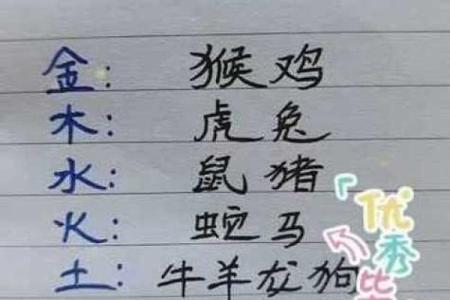 金: 猴鸡
木: 虎兔
水: 鼠猪
火: 蛇马
土: 牛羊龙狗
优秀比